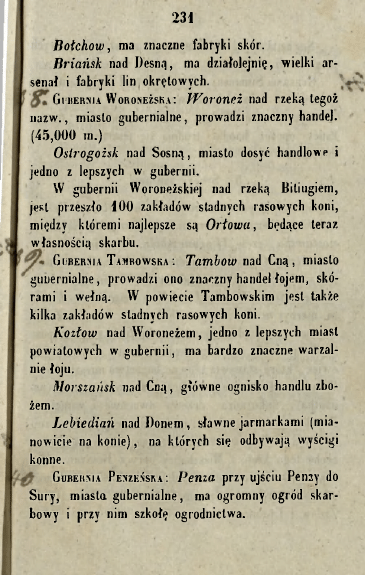 231
Bołchow, ma znaczne fabryki skór.
Briańsk nad Desną, ma działolejnię, wielki ar-
senał i fabryki lin okrętowych.
38. GUBERNIA WORONEŻSKA: Woroneż nad rzeką tegoż
nazw., miasto gubernialne, prowadzi znaczny handel.
(45,000 m.)
Ostrogożsk nad Sosną, miasto dosyć handlowe i
jedno z lepszych w gubernii.
W gubernii Woroneżskiej nad rzeką Bitiugiem,
jest przeszło 100 zakładów stadnych rasowych koni,
między któremi najlepsze są Orłowa, będące teraz
własnością skarbu.
39. GUBERNIA TAMBOWSKA: Tambow nad Cną, miasto
gubernialne, prowadzi ono znaczny handel łojem, skó-
rami i wełną. W powiecie Tambowskim jest także
kilka zakładów stadnych rasowych koni.
Kozłow nad Woroneżem, jedno z lepszych miast
powiatowych w gubernii, ma bardzo znaczne warzal-
nie łoju.
Morszańsk nad Cną, główne ognisko handlu zbo-
żem.
Lebiediań nad Donem, sławne jarmarkami (mia-
nowicie na konie), na których się odbywają wyścigi
konne.
40 GUBERNIA PENZEŃSKA: Penza przy ujściu Penzy do
Sury, miasto gubernialne, ma ogromny ogród skar-
bowy i przy nim szkołę ogrodnictwa.